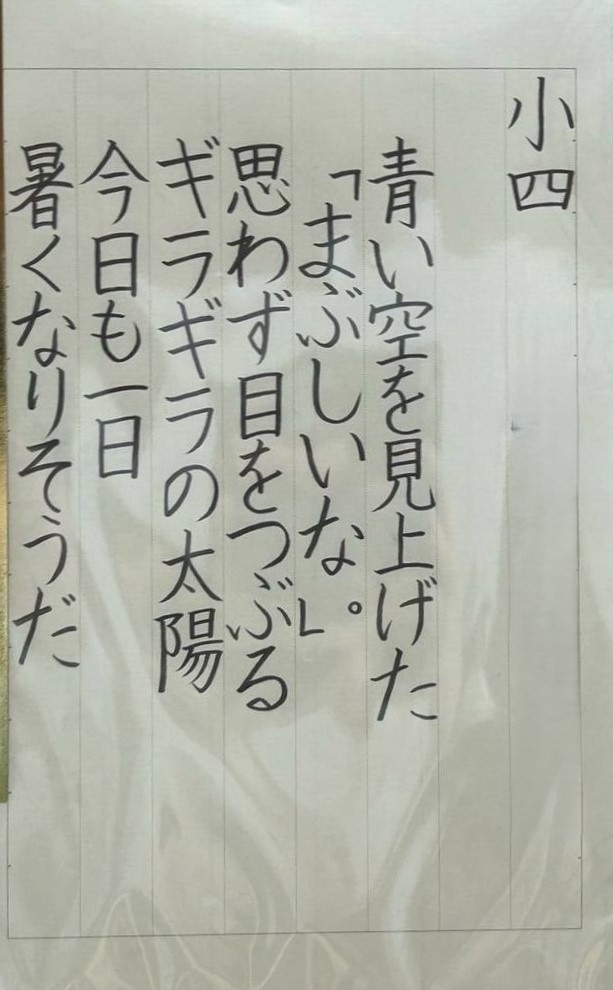 小四
青い空を見上げた
「まぶしいな。」
思わず目をつぶる
ギラギラの太陽
今日も一日
暑くなりそうだ